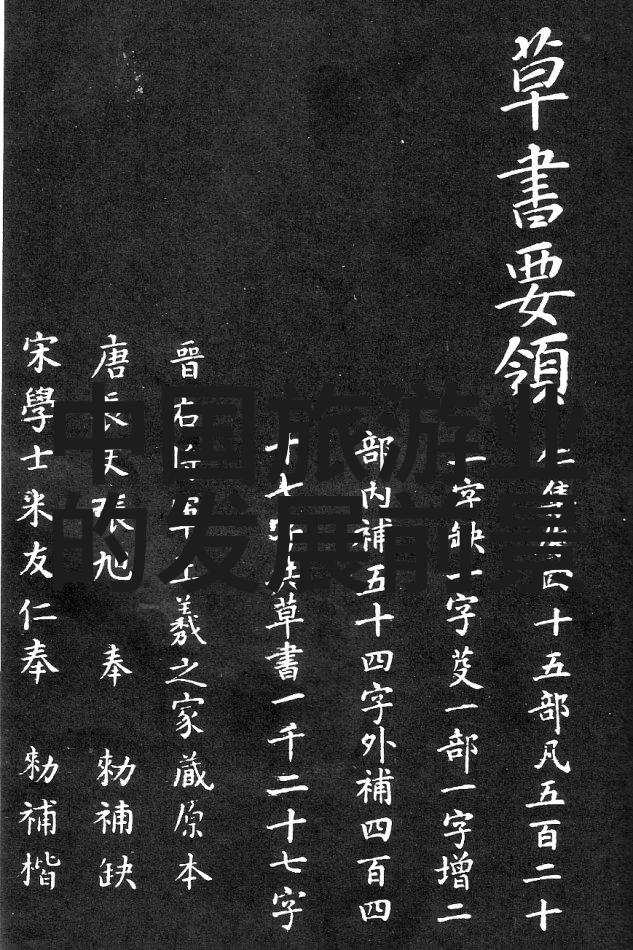 草書要領
十五部凡五百二十
一字缺一字芟一部一字增二
部內補五十四字外補四百四
十七字 草書一千二十七字
晉右 軍王羲之家蔵原本
唐長 張旭 奉 勅補缺
宋學士米友仁奉 勅補楷
中国旅游业
的发展前景